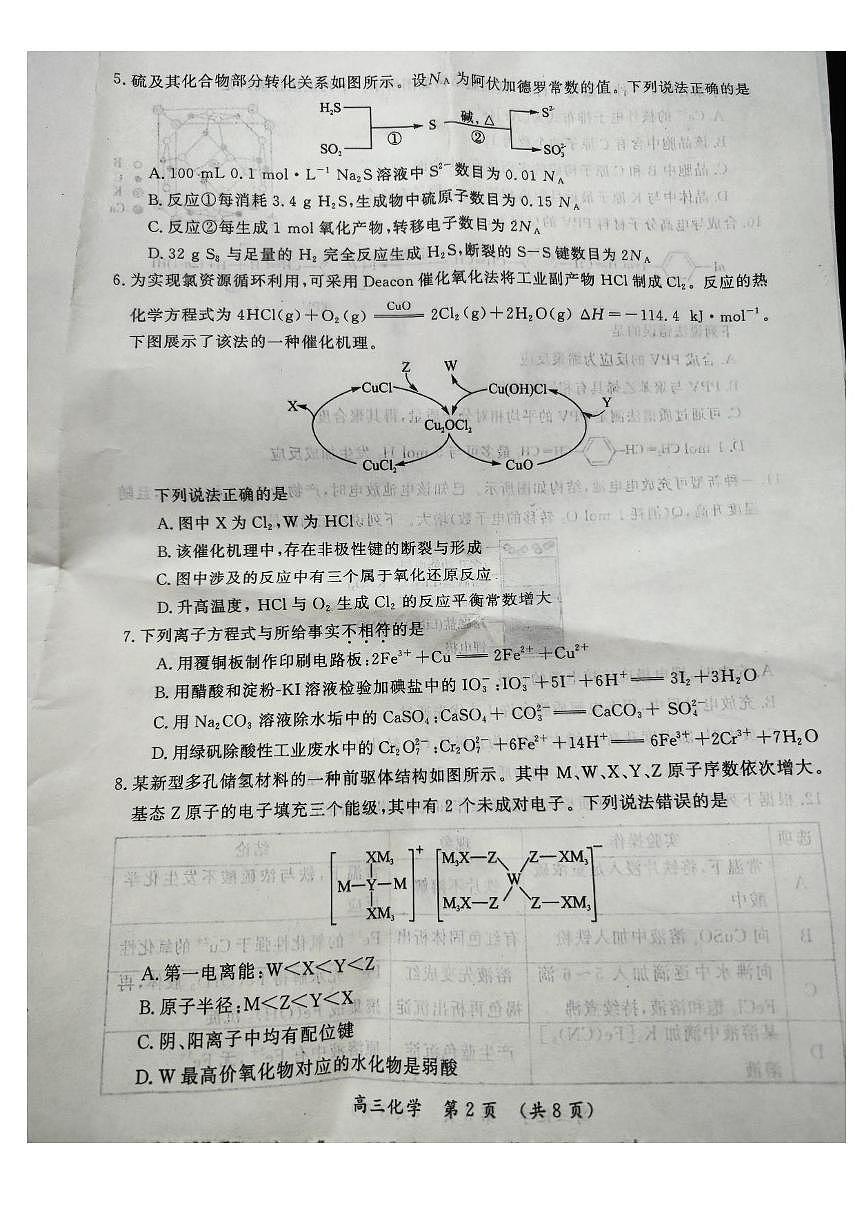 5. 硫及其化合物部分转化关系如图所示。设Nᴀ为阿伏加德罗常数的值。下列说法正确的是
H₂S
SO₂
①
S
碱，△
②
S²⁻
SO₃²⁻
A. 100 mL 0.1 mol·L⁻¹ Na₂S溶液中S²⁻数目为0.01 Nᴀ
B. 反应①每消耗3.4 g H₂S,生成物中硫原子数目为0.15 Nᴀ
C. 反应②每生成1 mol氧化产物,转移电子数目为2Nᴀ
D. 32 g S₈与足量的H₂完全反应生成H₂S,断裂的S—S键数目为2Nᴀ
6. 为实现氯资源循环利用,可采用Deacon催化氧化法将工业副产物HCl制成Cl₂。反应的热
化学方程式为4HCl(g)+O₂(g) ═CuO═ 2Cl₂(g)+2H₂O(g) ΔH=-114.4 kJ·mol⁻¹。
下图展示了该法的一种催化机理。
Z W
CuCl Cu(OH)Cl
X Y
Cu₂OCl₂
CuCl₂ CuO
下列说法正确的是
A. 图中X为Cl₂,W为HCl
B. 该催化机理中,存在非极性键的断裂与形成
C. 图中涉及的反应中有三个属于氧化还原反应
D. 升高温度，HCl与O₂生成Cl₂的反应平衡常数增大
7. 下列离子方程式与所给事实不相符的是
A. 用覆铜板制作印刷电路板:2Fe³⁺+Cu══2Fe²⁺+Cu²⁺
B. 用醋酸和淀粉-KI溶液检验加碘盐中的IO₃⁻:IO₃⁻+5I⁻+6H⁺══3I₂+3H₂O
C. 用Na₂CO₃溶液除水垢中的CaSO₄:CaSO₄+CO₃²⁻══CaCO₃+SO₄²⁻
D. 用绿矾除酸性工业废水中的Cr₂O₇²⁻:Cr₂O₇²⁻+6Fe²⁺+14H⁺══6Fe³⁺+2Cr³⁺+7H₂O
8. 某新型多孔储氢材料的一种前驱体结构如图所示。其中M、W、X、Y、Z原子序数依次增大。
基态Z原子的电子填充三个能级,其中有2个未成对电子。下列说法错误的是
XM₃ + M₃X—Z Z—XM₃ −
M—Y—M W
XM₃ M₃X—Z Z—XM₃
A. 第一电离能:W<X<Y<Z
B. 原子半径:M<Z<Y<X
C. 阴、阳离子中均有配位键
D. W最高价氧化物对应的水化物是弱酸
高三化学 第2页 (共8页)